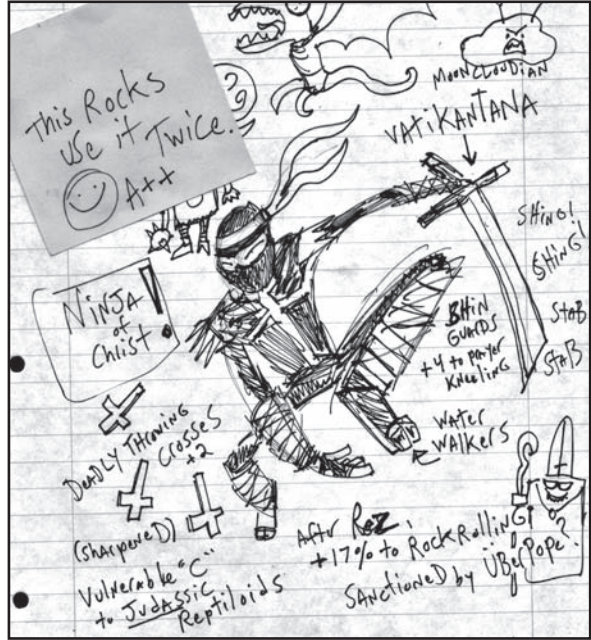 This Rocks
use it Twice.
A++
MOONCLOUDIAN
VATIKANTANA
SHING!
SHING!
STAB
STAB
NINJA
of
Christ!
SHIN
GUARDS
+4 to prayer
KNEELING
DEADLY THROWING
CROSSES
+2
WATER
WALKERS
(SHARPENED)
Vulnerable "C"
to JUDASSIC
Reptiloids
After Rez,
+17% to ROCK Rolling!
SANCTIONED by ÜBERPOPE?